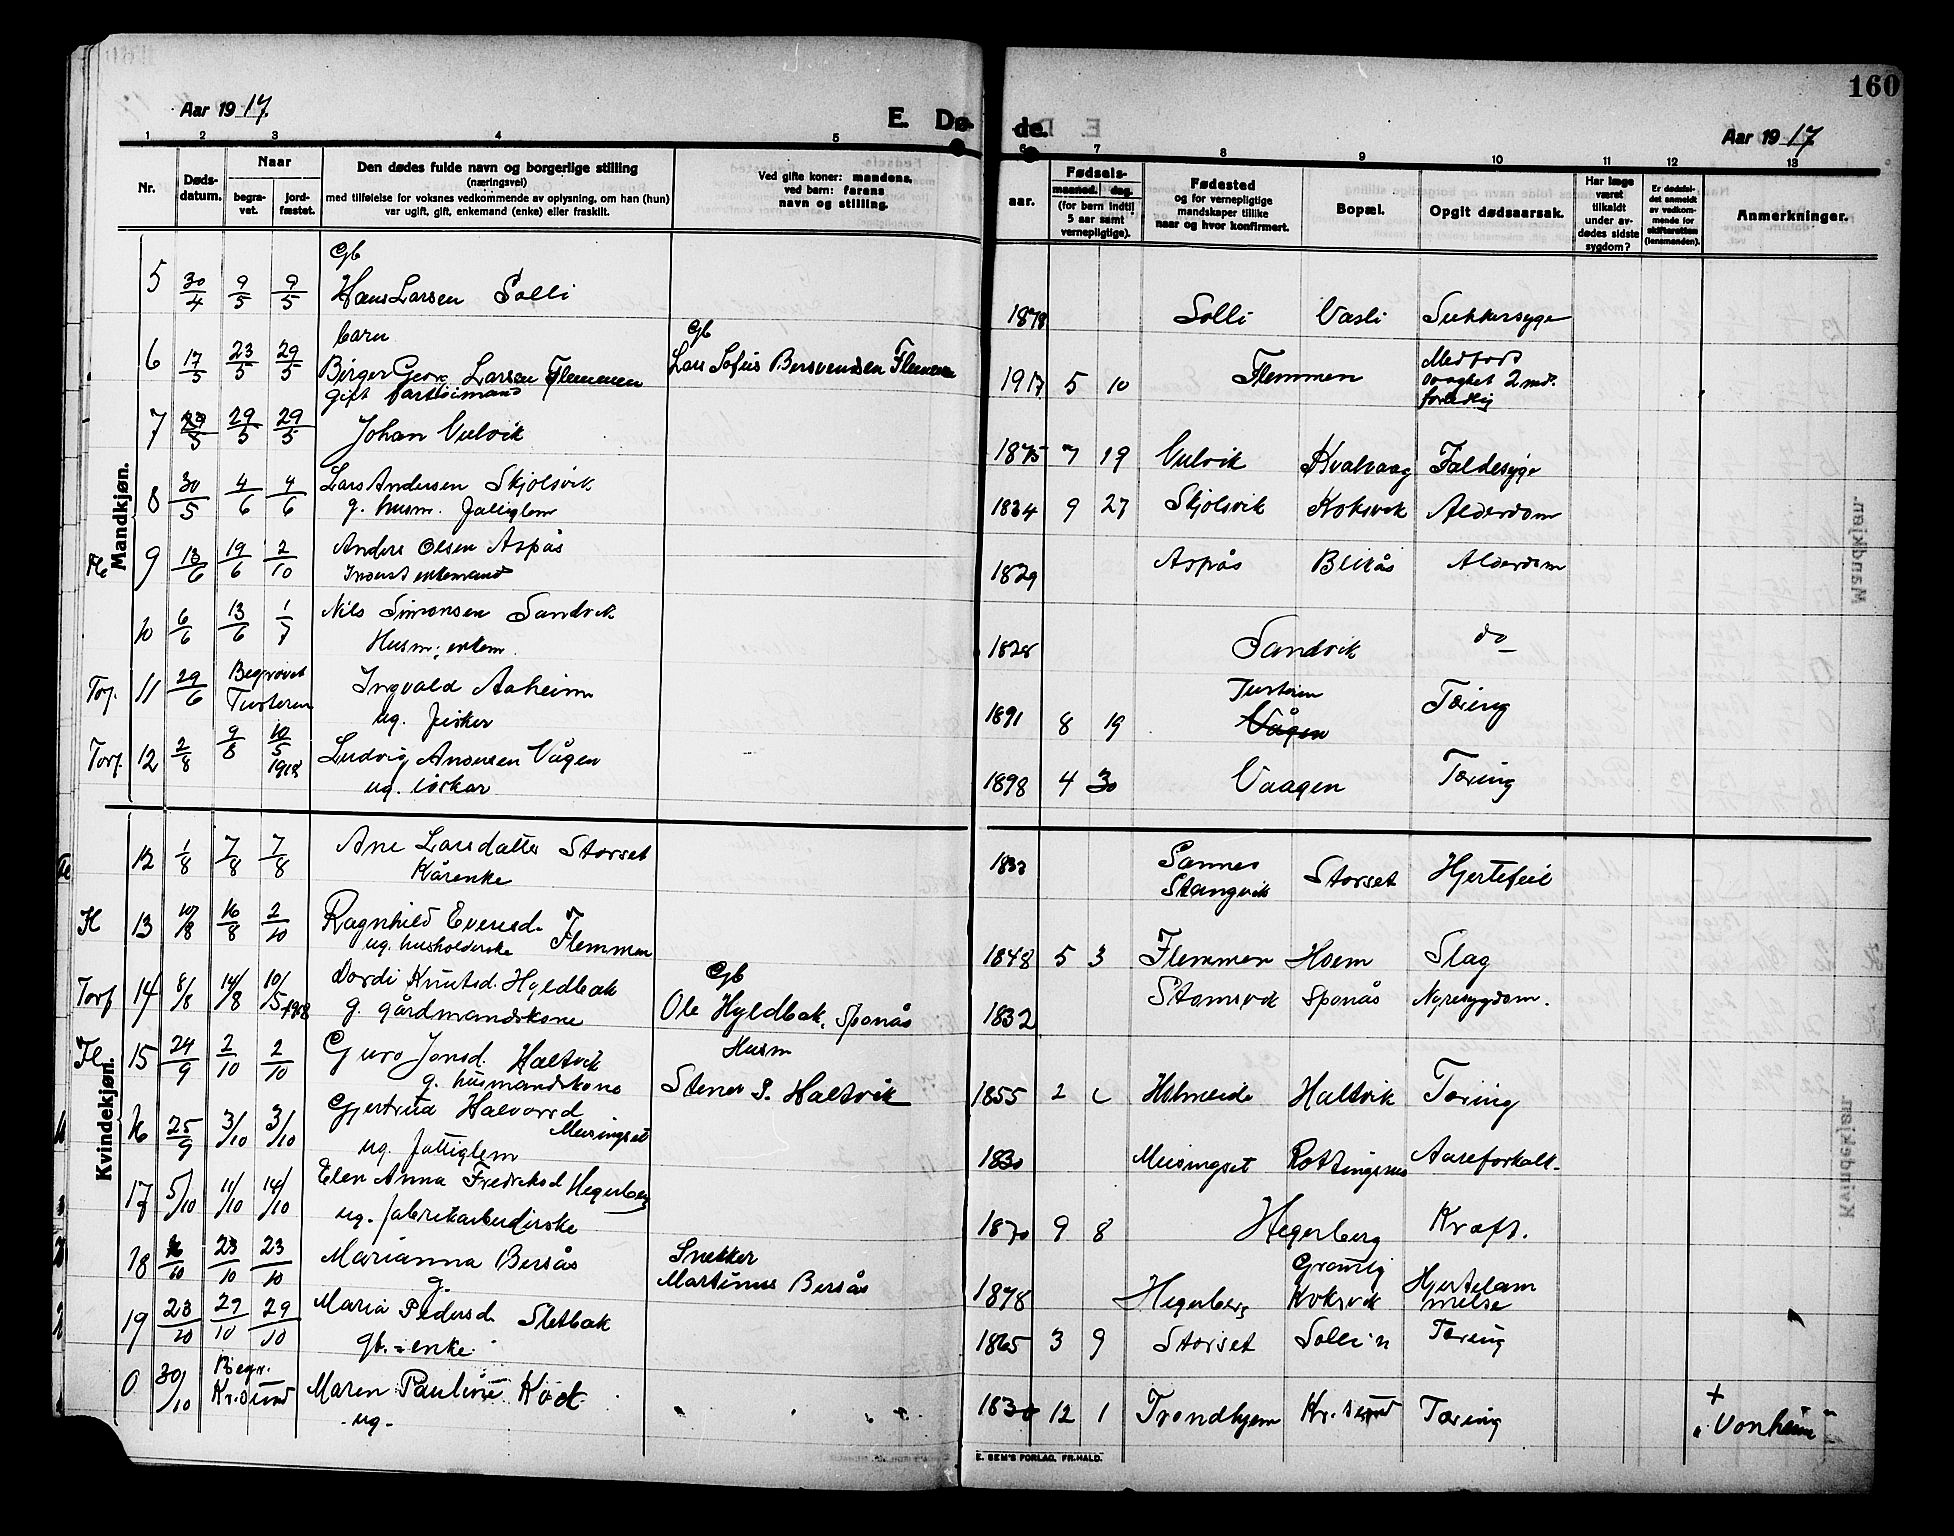 160
Aar 1917.
E. Døde.
Aar 1917
1 2 3 4 5 6 7 8 9 10 11 12 13
Nr.
Døds-
datum.
Naar
begra-
vet.
jord-
fæstet.
Den dødes fulde navn og borgerlige stilling
(næringsvei)
med tilføielse for voksnes vedkommende av oplysning, om han (hun)
var ugift, gift, enkemand (enke) eller fraskilt.
Ved gifte koner: mandens,
ved barn: farens
navn og stilling.
Fødsels-
aar.
maaned.
dag.
(for barn indtil
5 aar samt
vernepligtige).
Fødested
og for vernepligtige
mandskaper tillike
naar og hvor konfirmert.
Bopæl.
Opgit dødsaarsak.
Har læge
været
tilkaldt
under av-
dødes sidste
sygdom?
Er dødsfal-
det anmeldt
av vedkom-
mende for
skifteretten
(lensmanden).
Anmerkninger.
Mandkjøn.
Gb
5 30/4 9/5 9/5 Hans Larsen Solli 1878 Solli Vasli Sukkersyge
barn Gb
6 17/5 23/5 29/5 Birger Georg Larsen Flemmen Lars Sofus Bersvendsen Flemmen 1917 5 10 Flemmen Medfødt
svaghet 2 md.
for tidlig
gift partisimand
7 29/5 29/5 Johan Vulvik 1875 7 19 Vulvik Kvalvaag Faldesyge
8 30/5 4/6 4/6 Lars Andersen Skjølsvik 1834 9 27 Skjølsvik Koksvik Alderdom
g. husm. fattiglem
9 13/6 19/6 2/10 Anders Olsen Aspås 1829 Aspås Blikås Alderdom
Inderst enkemand
10 6/6 13/6 1/7 Nils Simonsen Sandvik 1828 Sandvik do
Husm; enkem.
Torf. 11 29/6 Begravet
Tusteren Ingvald Aaheim 1891 8 19 Tusteren
Vågen Tæring
ug. fisker
Torf. 12 2/8 9/8 10/5
1918 Ludvig Andersen Vågen 1898 4 30 Vaagen Tæring
ug. fisker
Kvindekjøn.
12 1/8 7/8 7/8 Ane Larsdatter Storset 1833 Sannes
Stangvik Storset Hjertefeil
Kårenke
Fl 13 10/8 16/8 2/10 Ragnhild Evensd. Flemmen 1848 5 3 Flemmen Hoem Slag
ug. husholderske
Torf 14 8/8 14/8 10/5 1918 Dordi Knutsd. Hyldbak Gb
Ole Hyldbak, Sponås 1832 Stamsvik Sponås Nyresygdom.
g. gårdmandskone
Fl. 15 24/9 2/10 2/10 Guro Jonsd. Haltvik Husm
Stener P. Haltvik 1855 2 Holmeide Haltvik Tæring
g. husmandskone
16 25/9 3/10 3/10 Gjertrud Halvorsd Meisingset 1830 Meisingset Rottingsnes Aareforkalk.
ug. fattiglem
17 5/10 11/10 14/10 Elen Anna Fredriksd Hegerberg 1870 9 8 Hegerberg Kræft.
ug. fabrikarbeiderske
18 16/10 23/10 23/10 Marianna Bersås Snekker
Martinus Bersås 1878 Hegerberg Grønlig
Koksvik Hjertelam
melse
g.
19 23/10 29/10 29/10 Maria Pedersd. Sletbak 1865 3 9 Storset Solli'n Tæring
gb. - enke.
0 30/10 Begr.
Kr.sund Maren Pauline Kock 1830 12 1 Trondhjem Kr.sund Tæring + „Vonheim"
- ug -
E. SEM'S FORLAG, FR.HALD.